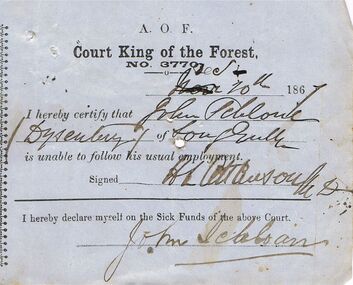 A. O. F.
Court King of the Forest,
NO. 3770
Decr 10th 1867
I hereby certify that John
(Dysentery) of Long Gully
is unable to follow his usual employment.
Signed
I hereby declare myself on the Sick Funds of the above Court.
John